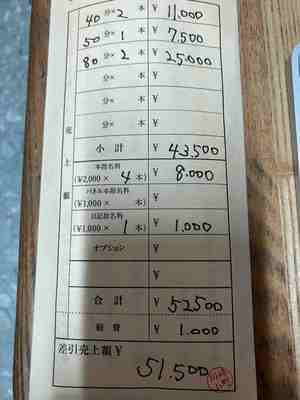 40分× 2 本 ¥ 11.000
50分× 1 本 ¥ 7.500
80分× 2 本 ¥ 25.000
分× 本 ¥
分× 本 ¥
分× 本 ¥
売上額
小計 ¥ 43.500
本指名料
(¥2,000× 4 本) ¥ 8.000
パネル本指名料
(¥1,000× 本) ¥
日記指名料
(¥1,000× 1 本) ¥ 1.000
オプション ¥
¥
合計 ¥ 52500
雑費 ¥ 1.000
差引売上額 ¥ 51.500